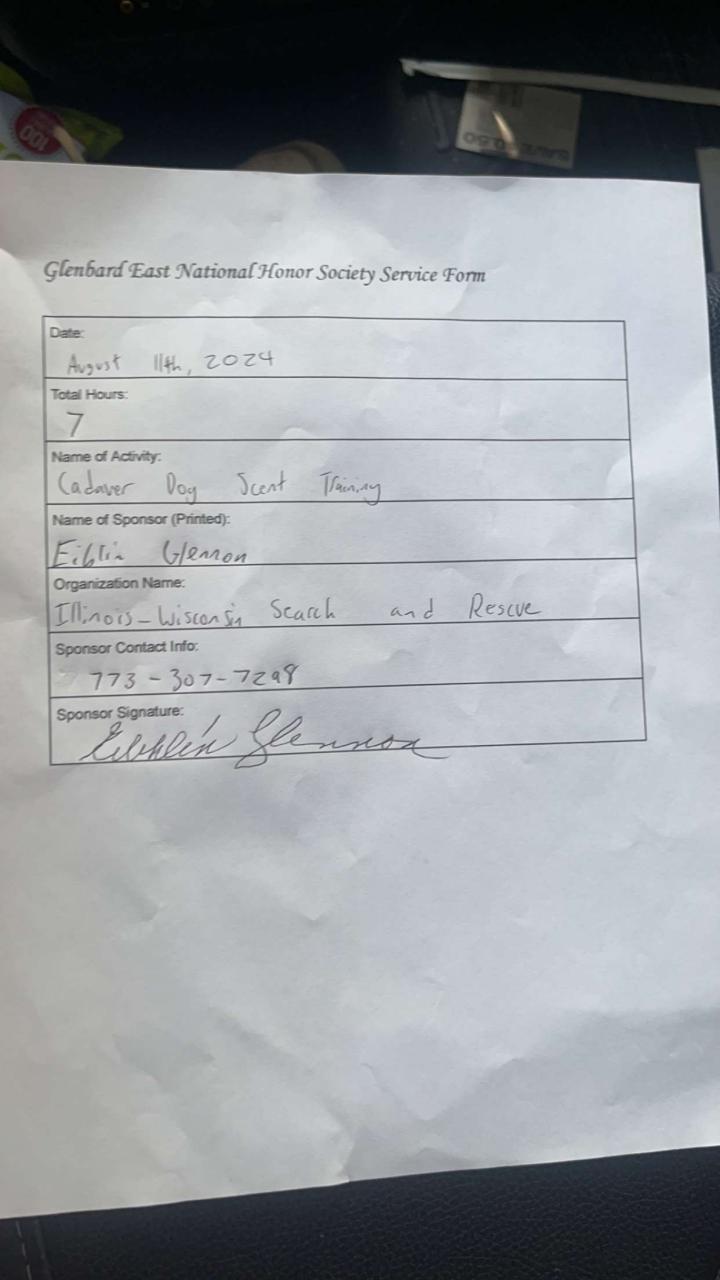 Glenbard East National Honor Society Service Form
Date:
August 11th, 2024
Total Hours:
7
Name of Activity:
Cadaver Dog Scent Training
Name of Sponsor (Printed):
Eiblin Glennon
Organization Name:
Illinois-Wisconsin Search and Rescue
Sponsor Contact Info:
773-307-7298
Sponsor Signature:
Glennon
100